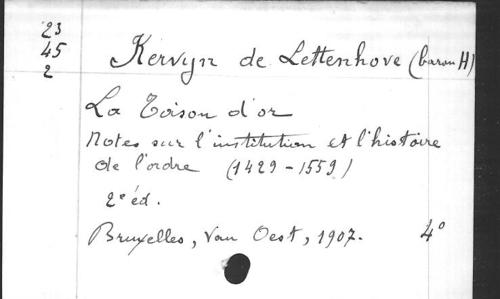 23
45
2
Kervyn de Lettenhove (baron H)
La Toison d'or
Notes sur l'institution et l'histoire
de l'ordre (1429-1559)
2e éd.
Bruxelles, Van Oest, 1907. 4°